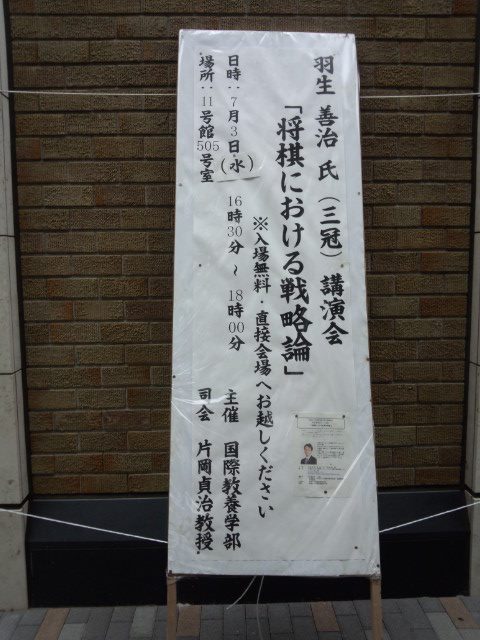 羽生 善治 氏 (三冠) 講演会
「将棋における戦略論」
※入場無料・直接会場へお越しください
日時:7月3日(水) 16時30分 ~ 18時00分
場所:11号館505号室
主催 国際教養学部
司会 片岡貞治教授